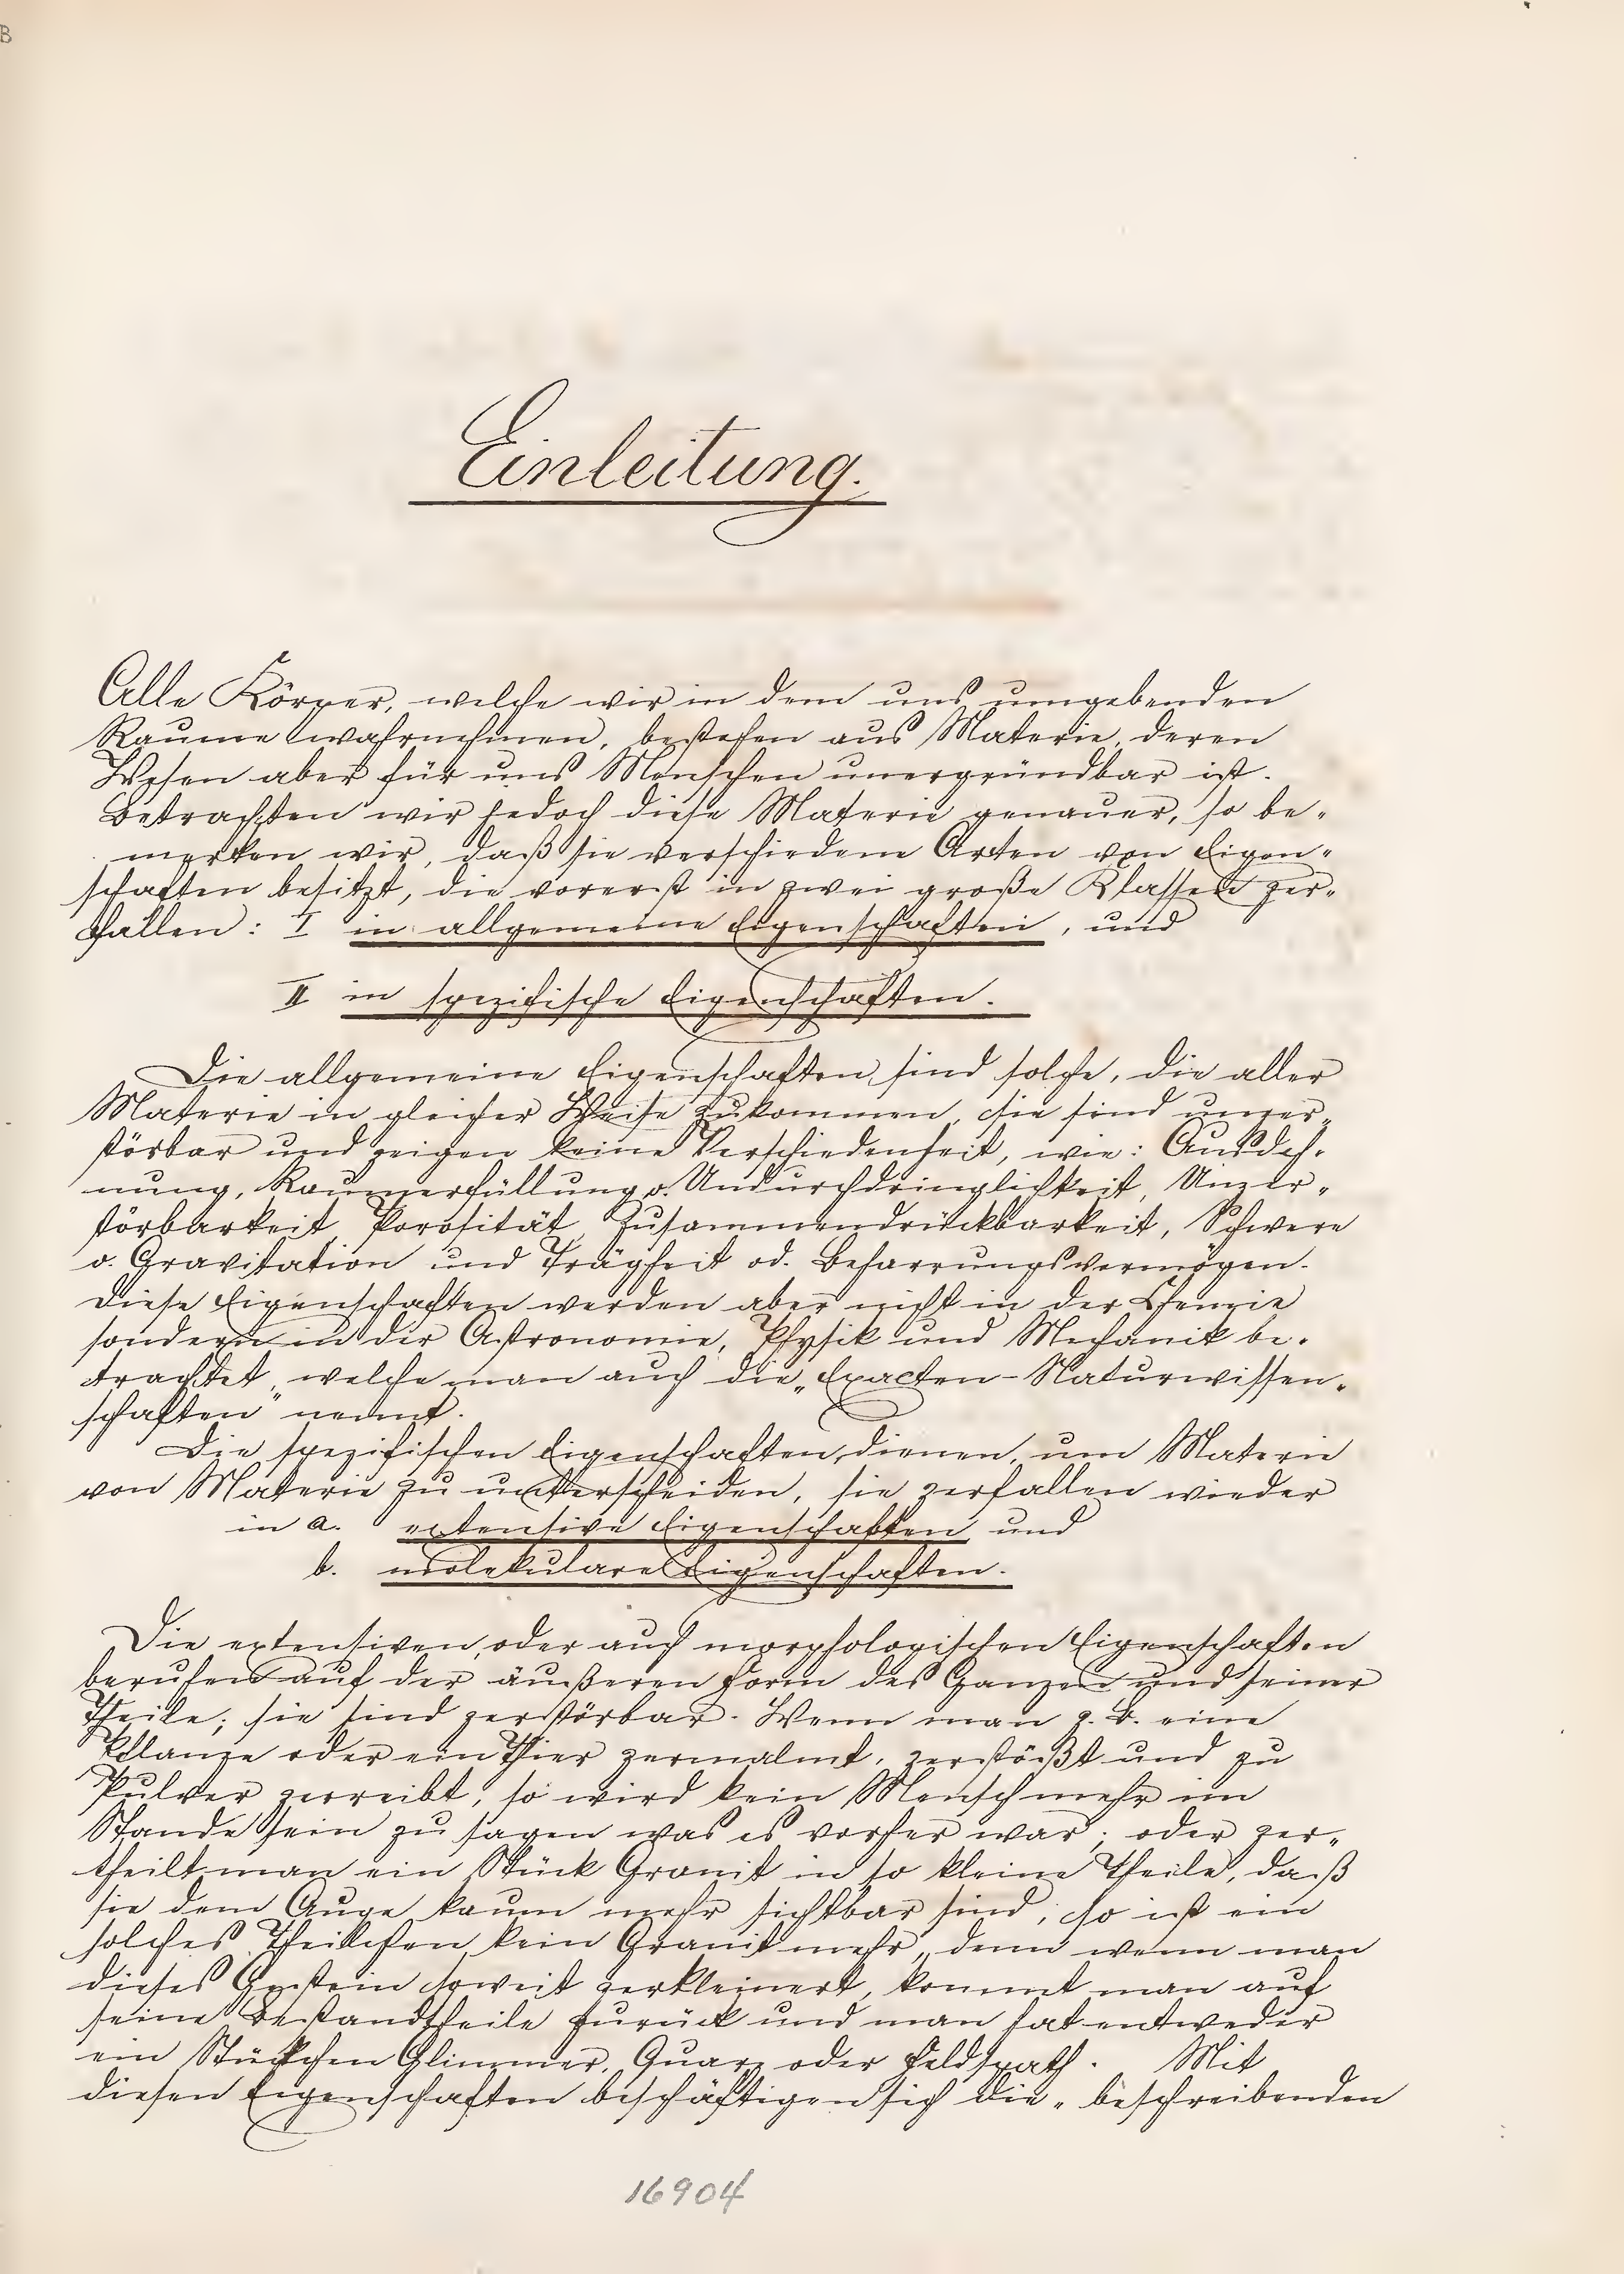 B
Einleitung.
Alle Körper, welche wir in dem uns umgebenden
Raume wahrnehmen, bestehen aus Materie, deren
Wesen aber für uns Menschen unergründbar ist.
Betrachten wir jedoch diese Materie genauer, so be-
merken wir, daß sie verschiedene Arten von Eigen-
schaften besitzt, die vorerst in zwei große Klassen zer-
fallen: I in allgemeine Eigenschaften, und
II in spezifische Eigenschaften.
Die allgemeine Eigenschaften sind solche, die aller
Materie in gleicher Weise zukommen, sie sind unzer-
störbar und zeigen keine Verschiedenheit, wie: Ausdeh-
nung, Raumerfüllung o. Undurchdringlichkeit, Unzer-
störbarkeit, Porosität, Zusammendrückbarkeit, Schwere
o. Gravitation und Trägheit od. Beharrungsvermögen.
Diese Eigenschaften werden aber nicht in der Chemie
sondern in der Astronomie, Physik und Mechanik be-
trachtet, welche man auch die „Exacten-Naturwissen-
schaften" nennt.
Die spezifischen Eigenschaften dienen, um Materie
von Materie zu unterscheiden, sie zerfallen wieder
in a. extensive Eigenschaften und
b. molekulare Eigenschaften.
Die extensiven, oder auch morphologischen Eigenschaften
beruhen auf der äußeren Form des Ganzen und seiner
Theile; sie sind zerstörbar. Wenn man z. B. eine
Pflanze oder ein Thier zermalmt, zerstößt und zu
Pulver zerreibt, so wird kein Mensch mehr im
Stande sein zu sagen was es vorher war; oder zer-
theilt man ein Stück Granit in so kleine Theile, daß
sie dem Auge kaum mehr sichtbar sind, so ist ein
solches Theilchen kein Granit mehr, denn wenn man
dieses Gestein soweit zerkleinert, kommt man auf
seine Bestandtheile zurück und man hat entweder
ein Stückchen Glimmer, Quarz oder Feldspath. Mit
diesen Eigenschaften beschäftigen sich die „beschreibenden
16904